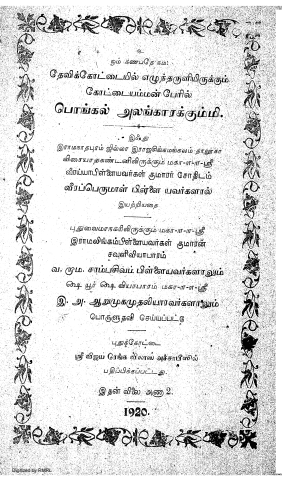 உ
ஓம் கணபதே நம:
தேவிக்கோட்டையில் எழுந்தருளியிருக்கும்
கோட்டையம்மன் பேரில்
பொங்கல் அலங்காரக்கும்மி.
இஃது
இராமநாதபுரம் ஜில்லா இராஜசிங்கமங்கலம் தாலூகா
விசையாதகண்டனிலிருக்கும் மகா-ள-ள-ஸ்ரீ
வீரய்யாபிள்ளையவர்கள் குமாரர் சோதிடம்
வீரப்பெருமாள் பிள்ளை யவர்களால்
இயற்றியதை
புதுவைமாநகரிலிருக்கும் மகா-ள-ள-ஸ்ரீ
இராமலிங்கம்பிள்ளையவர்கள் குமாரன்
சவுளிவியாபாரம்
வ. மும. சாம்பசிவம் பிள்ளையவர்களாலும்
ஷை யூர் ஷை வியாபாரம் மகா-ள-ள-ஸ்ரீ
இ. அ. ஆறுமுகமுதலியாரவர்களாலும்
பொருளுதவி செய்யப்பட்டு
புதுக்கோட்டை
ஸ்ரீ விஜய ரெங்க விலாஸ அச்சாபீஸில்
பதிப்பிக்கப்பட்டது.
இதன் விலை அணா 2.
1920.
Digitized by RMRL